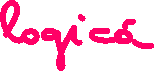 logicá